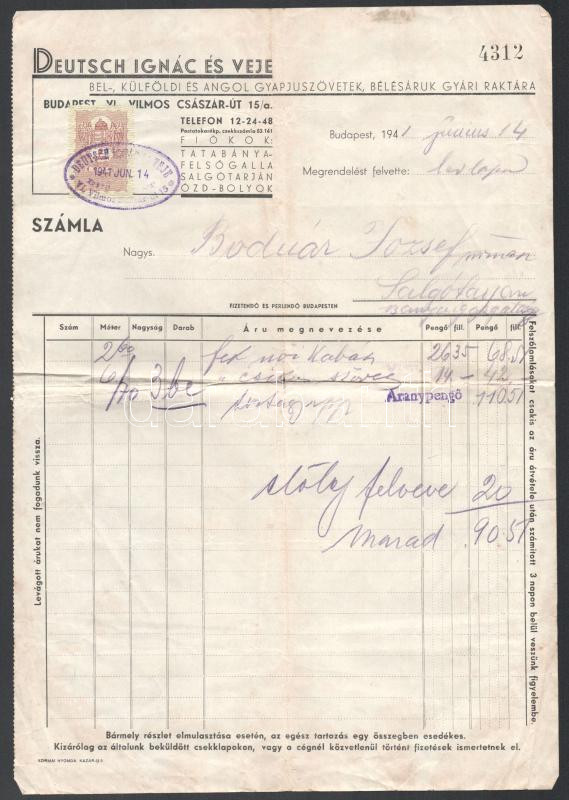 4312
DEUTSCH IGNÁC ÉS VEJE
BEL-, KÜLFÖLDI ÉS ANGOL GYAPJUSZÖVETEK, BÉLÉSÁRUK GYÁRI RAKTÁRA
BUDAPEST, VI., VILMOS CSÁSZÁR-ÚT 15/a.
TELEFON 12-24-48
Postatakarékp. csekkszámla 53.161
FIÓKOK:
TATABÁNYA-
FELSŐGALLA
SALGÓTARJÁN
ÓZD-BOLYOK
DEUTSCH IGNÁC ÉS VEJE
1941 JUN. 14
Budapest, 1941 junius 14
Megrendelést felvette:
SZÁMLA
Nagys. Bodnár József
Salgótarján
FIZETENDŐ ÉS PERLENDŐ BUDAPESTEN
Szám Méter Nagyság Darab Áru megnevezése Pengő fill. Pengő fill.
2 60 fek női Kabát 26 35 68 51
3 14 - 42
Aranypengő 110 51
felvéve 20
marad 90.51
Levágott árukat nem fogadunk vissza.
Felszólamlásokat csakis az áru átvétele után számított 3 napon belül veszünk figyelembe.
Bármely részlet elmulasztása esetén, az egész tartozás egy összegben esedékes.
Kizárólag az általunk beküldött csekklapokon, vagy a cégnél közvetlenül történt fizetések ismertetnek el.